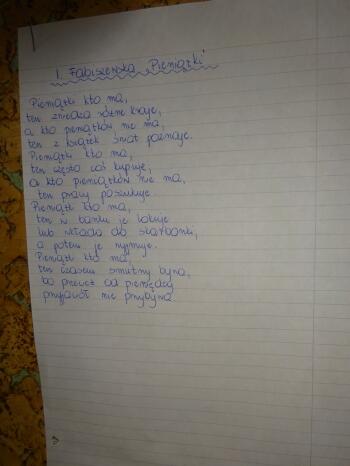 I. Fabiszewska "Pieniążki"
Pieniążki kto ma,
ten zwiedza różne kraje,
a kto pieniążków nie ma,
ten z książek świat poznaje.
Pieniążki kto ma,
ten często coś kupuje,
a kto pieniążków nie ma,
ten pracy poszukuje.
Pieniążki kto ma,
ten w banku je lokuje
lub wkłada do skarbonki,
a potem je wyjmuje.
Pieniążki kto ma,
ten czasem smutny bywa,
bo przecież od pieniędzy
przyjaciół nie przybywa